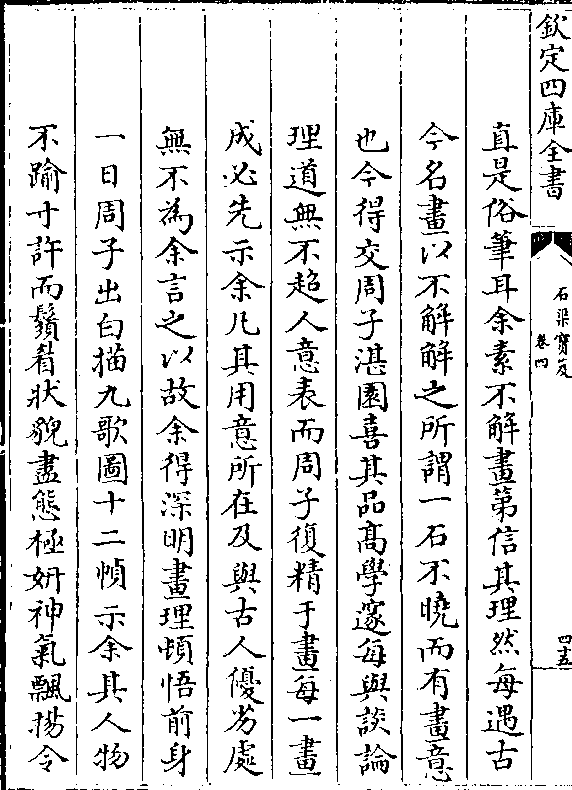 欽定四庫全書
石渠寶笈
卷四
四十五
直是俗筆耳余素不解畫第信其理然每遇古
今名畫以不解解之所謂一石不曉而有畫意
也今得交周子湛園喜其品髙學邃每與談論
理道無不超人意表而周子復精于畫每一畫
成必先示余凡其用意所在及與古人優劣處
無不為余言之以故余得深明畫理頓悟前身
一日周子出白描九歌圖十二幀示余其人物
不踰寸許而鬚眉狀貌盡態極妍神氣飄揚令